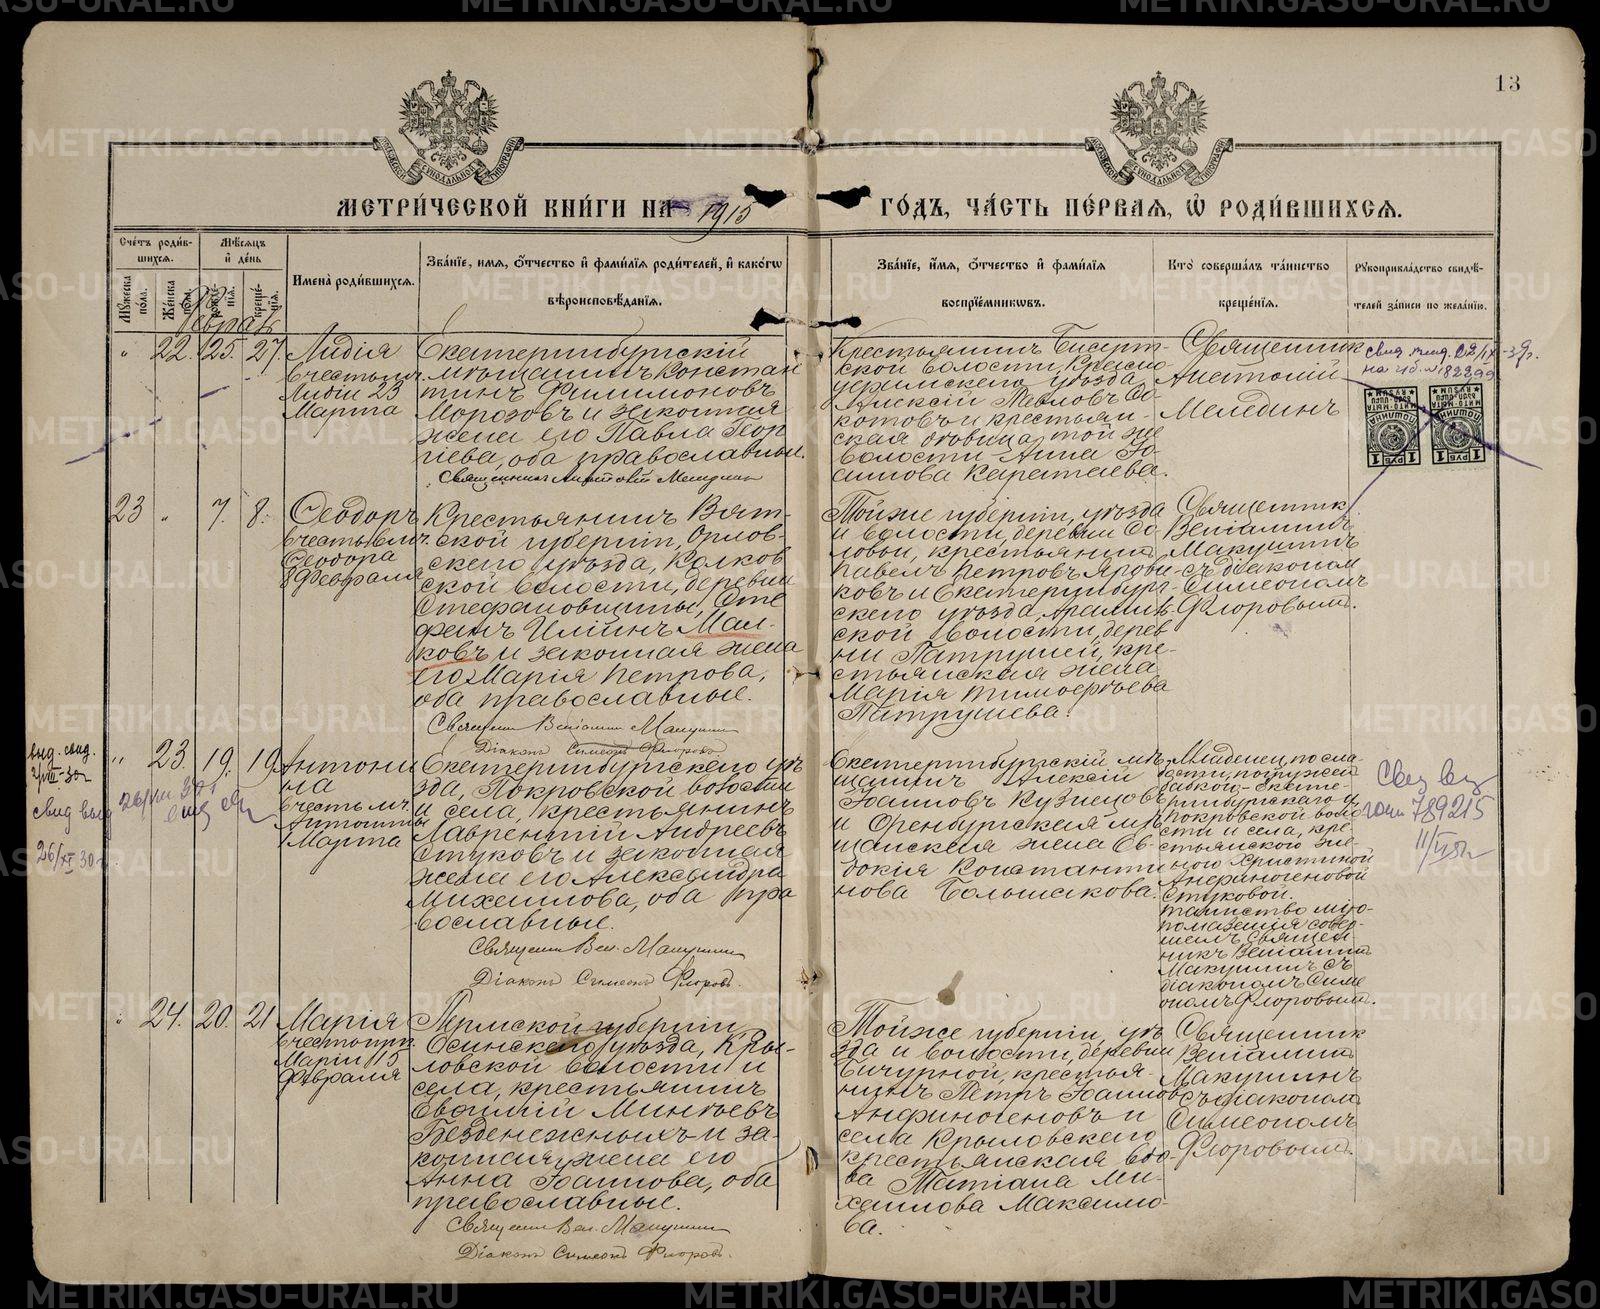 13
МЕТРИ́ЧЕСКОЙ КНИ́ГИ НА 1915
ГО́ДЪ, ЧА́СТЬ ПЕ́РВАЯ, Ѡ РОДИ́ВШИХСЯ.
Сче́тъ роди́в-
шихся.
Му́жеска по́ла.
Же́нска по́ла.
Мѣ́сяцъ
и де́нь
рожде́-
нія.
креще́-
нія.
Имена̀ роди́вшихся.
Зва́ніе, имя, о́тчество и фами́лія роди́телей, и како́гѡ
вѣроисповѣ́данія.
Зва́ніе, и́мя, о́тчество и фами́лія
воспріе́мниковъ.
Кто̀ соверша́лъ та́инство
креще́нія.
Рукоприкла́дство свидѣ́-
телей за́писи по жела́нію.
Февраль
" 22. 25. 27.
Лидія
въ честь муч.
Лидіи 23
Марта
Екатеринбургскій
мѣщанинъ Констан
тинъ Филимоновъ
Морозовъ и законная
жена его Павла Геор
гіева, оба православные.
Священникъ Анатолій Меледин
Крестьянинъ Бисерт-
ской волости, Красно
уфимскаго уѣзда
Алексій Павловъ
и крестьян-
ская вдовица той же
волости Анна Іо-
аннова Каратаева.
Священник
Анатолій
Мелединъ
1 РУБ 1
1 РУБ 1
23 " 7. 8.
Феодоръ
въ честь вмч.
Феодора
8 Февраля
Крестьянинъ Вят-
ской губерніи, Орлов-
скаго уѣзда, Колков
ской волости, деревни
Стефановщины, Сте
фанъ Ильинъ Мал-
ковъ и законная жена
его Марія Петрова,
оба православные.
Священ Веніамин Макушин
Діаконъ Симеонъ Флоровъ
Той же губерніи, уѣзда
и волости, деревни Со
ловьи, крестьянин
Павелъ Петровъ Ярови-
ковъ и Екатеринбург-
скаго уѣзда, Арамиль
ской волости, дерев
ни Патрушей, кре-
стьянская жена
Марія Тимофѣева
Патрушева.
Священник
Веніаминъ
Макушинъ
съ діаконом
Симеономъ
Флоровым.
" 23. 19. 19.
Антони
на
въ честь мч.
Антонины
1 Марта
Екатеринбургскаго уѣ
зда, Покровской волости
и села, крестьянинъ
Лаврентій Андреевъ
Стуковъ и законная
жена его Александра
Михаилова, оба пра
вославные.
Священ Вен. Макушин
Діаконъ Симеонъ Флоровъ.
Екатеринбургскій мѣ
щанинъ Алексій
Іоанновъ Кузнецовъ
и Оренбургская мѣ
щанская жена Ев-
докія Константи
нова Большакова.
Младенец по сла-
бости, погружен
бабкою Екате-
ринбургскаго у.
Покровской воло
сти и села, кре-
стьянскою же-
ною Христиной
Анфиногеновой
Стуковой.
таинство миро-
помазанія совер-
шилъ Священ
никъ Веніамин
Макушинъ съ
діакономъ Симе
ономъ Флоровым.
789215
26/XI 30г.
" 24. 20. 21
Марія
въ честь прп.
Маріи 15
Февраля
Пермской губерніи
Осинскаго уѣзда, Кры-
ловской волости и
села, крестьянинъ
Евфимій Минѣевъ
Безденежныхъ и за-
конная жена его
Анна Іоаннова, оба
православные.
Священ Вен. Макушин
Діаконъ Симеонъ Флоровъ.
Той же губерніи, уѣ
зда и волости, деревни
Бичурной, крестья-
нинъ Петръ Іоаннов
Анфиногеновъ и
села Крыловскаго
крестьянская вдо-
ва Татіана Ми-
хаилова Максимо-
ва.
Священник
Веніамин
Макушинъ
съ діаконом
Симеономъ
Флоровым.
METRIKI.GASO-URAL.RU